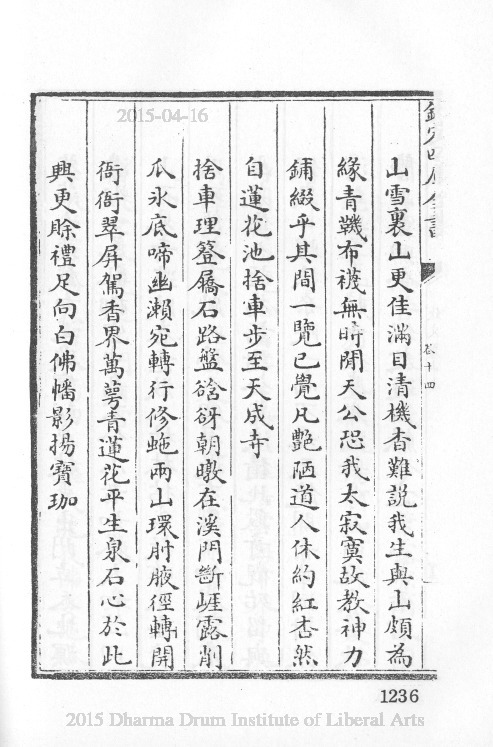 2015-04-16
欽定四庫全書
卷十四
山雪裏山更佳滿目清機杳難説我生與山頗為
緣青鞵布襪無時閒天公恐我太寂寞故教神力
鋪綴乎其間一覽已覺凡艶陋道人休約紅杏然
自蓮花池捨車步至天成寺
捨車理簦屩石路盤谽谺朝暾在溪門斷崕露削
瓜氷底啼幽瀨宛轉行修虵兩山環肘腋徑轉開
衙衙翠屏駕香界萬萼青蓮花平生泉石心於此
興更賒禮足向白佛幡影揚寶珈
1236
2015 Dharma Drum Institute of Liberal Arts